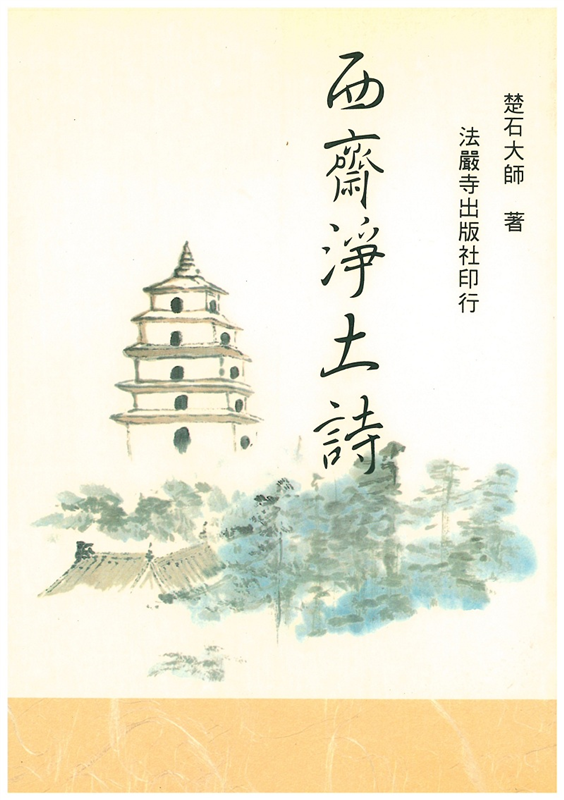 楚石大師　著
法嚴寺出版社印行
西齋淨土詩